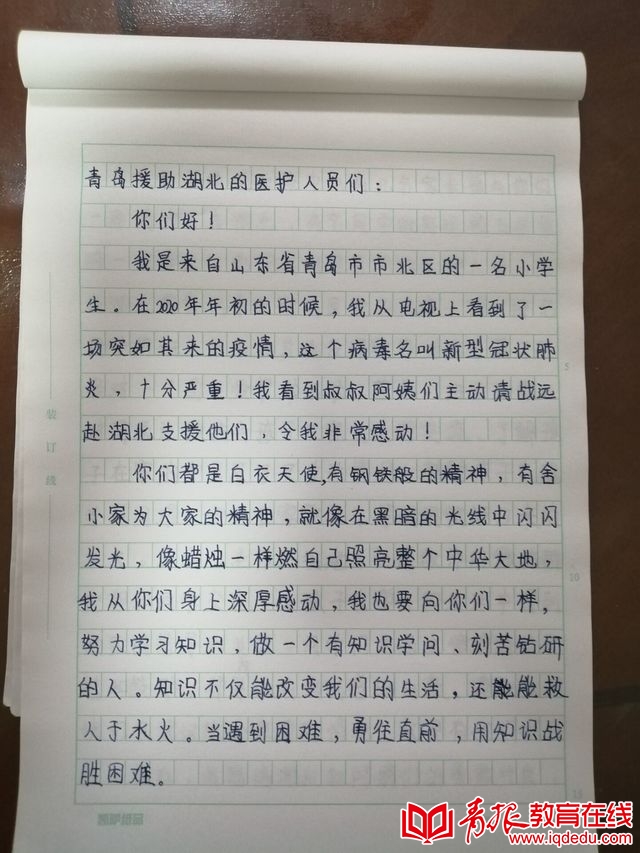 青岛援助湖北的医护人员们：
你们好！
我是来自山东省青岛市市北区的一名小学
生。在2020年年初的时候，我从电视上看到了一
场突如其来的疫情，这个病毒名叫新型冠状肺
炎，十分严重！我看到叔叔阿姨们主动请战远
赴湖北支援他们，令我非常感动！
你们都是白衣天使，有钢铁般的精神，有舍
小家为大家的精神，就像在黑暗的光线中闪闪
发光，像蜡烛一样燃自己照亮整个中华大地，
我从你们身上深厚感动，我也要向你们一样，
努力学习知识，做一个有知识学问、刻苦钻研
的人。知识不仅能改变我们的生活，还能能救
人于水火。当遇到困难，勇往直前，用知识战
胜困难。
装订线
5
10
15
青报教育在线
www.iqdedu.com